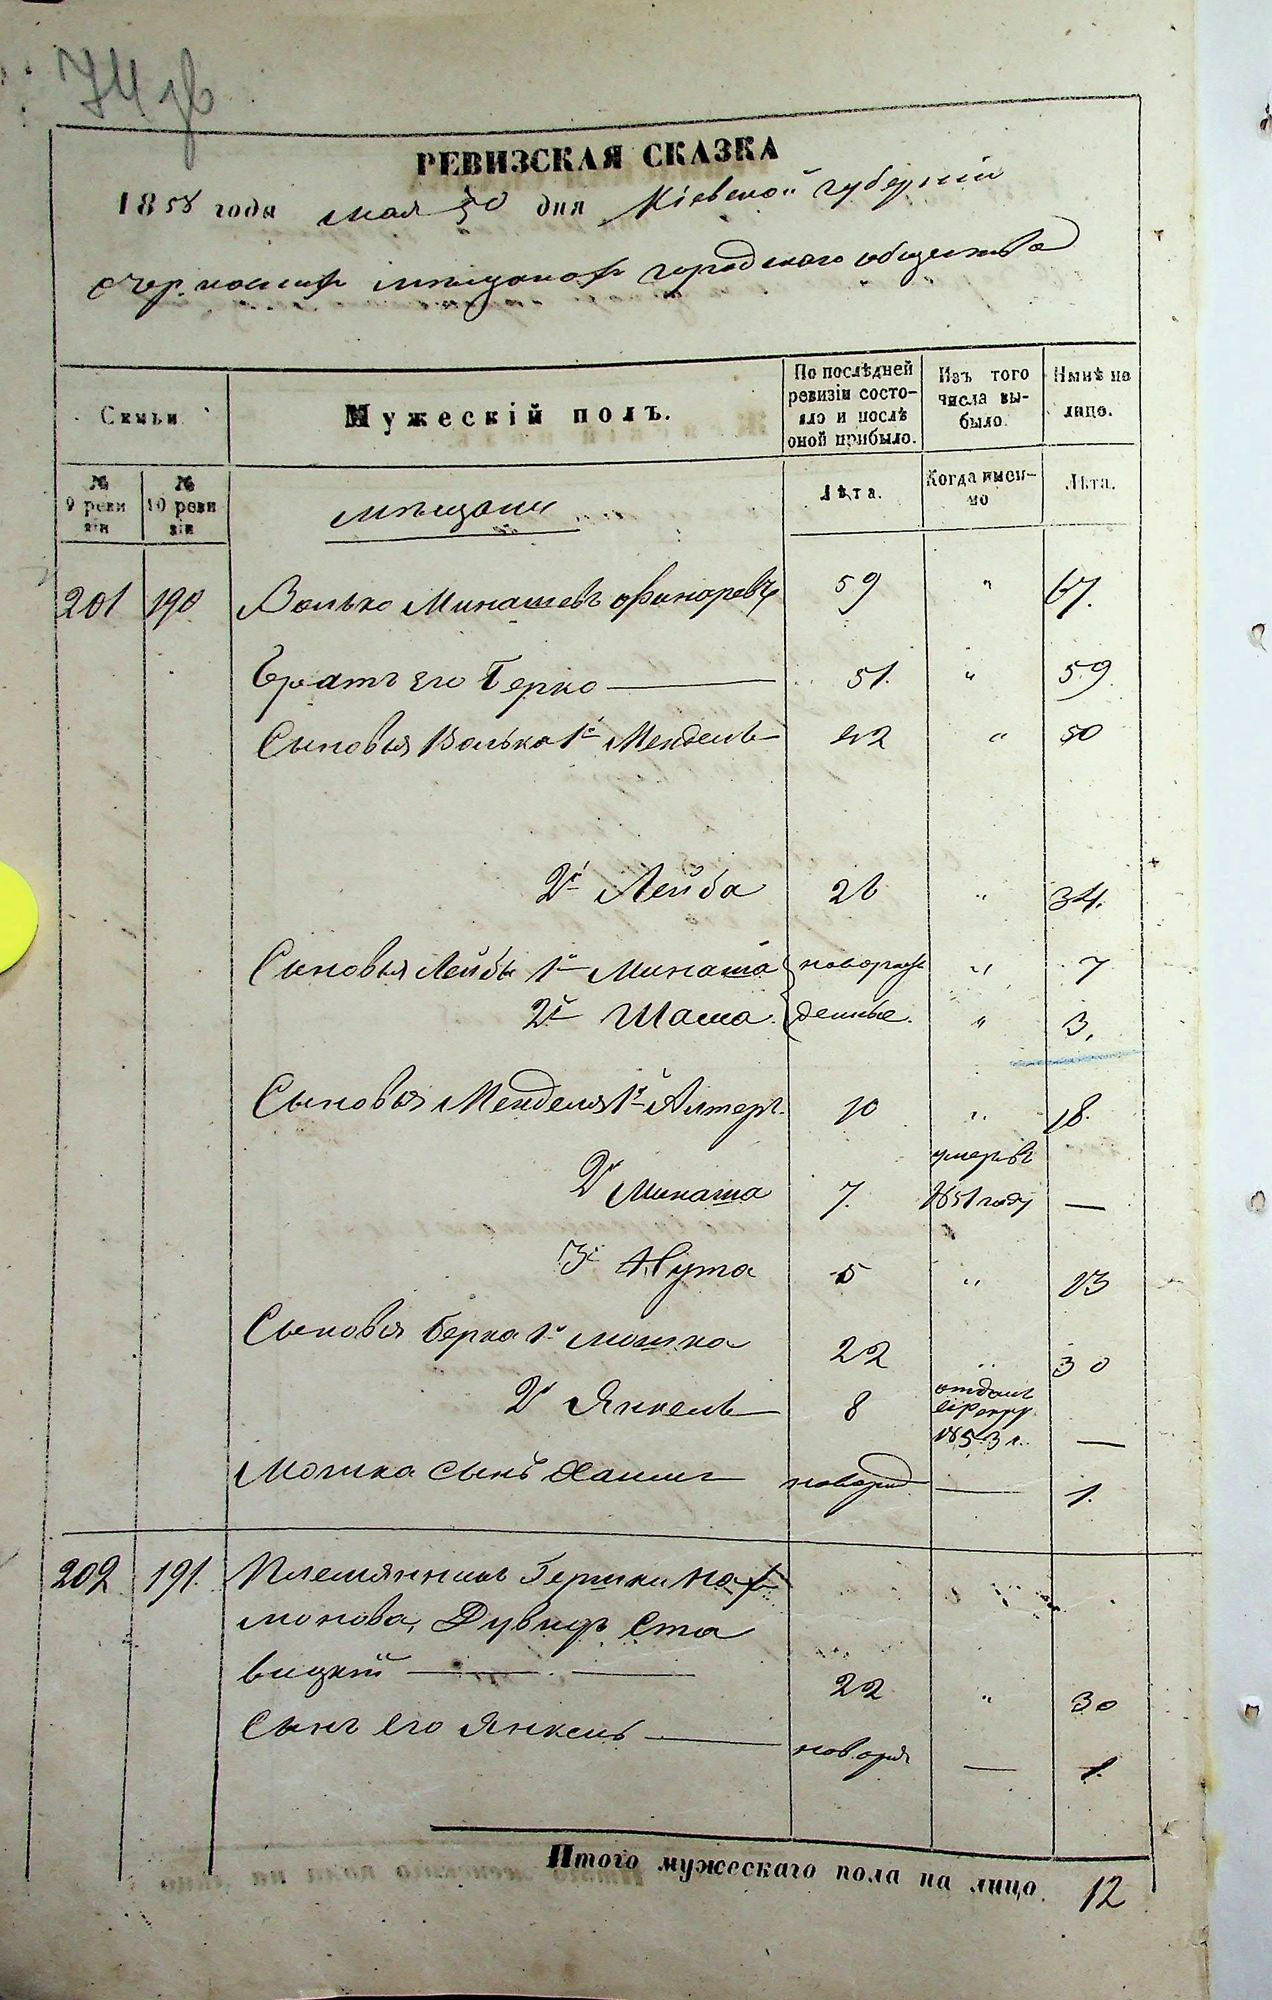 РЕВИЗСКАЯ СКАЗКА
1858 года мая 30 дня Кіевской губерніи
мѣщанъ городскаго общества
Семьи
Мужескій полъ.
По послѣдней ревизіи состояло и послѣ оной прибыло.
Изъ того числа выбыло.
Нынѣ на лицо.
№ 9 ревизіи
№ 10 ревизіи
мѣщани
Лѣта.
Когда именно
Лѣта.
201 190 Волько Минашевъ 59 " 67.
Братъ его Берко 51. " 59
Сыновья Волька 1й Мендель 42 " 50
2й Лейба 26 " 34.
Сыновья Лейбы 1й Минаша новорож " 7
2й Шама денные. " 3.
Сыновья Менделя 1й Алтеръ 10 " 18.
2й Минаша 7. умеръ въ 1851 году —
3й Нута 5 " 13
Сыновья Берка 1й Мошка 22 " 30
2й Янкель 8 отданъ 1853 г. —
Мошка сынъ новорожд — 1.
202 191. Племянникъ Гершки Нах
монова, Дувидъ Ста
вицкій 22 " 30
Сынъ его Янкель — 1.
Итого мужескаго пола на лицо 12